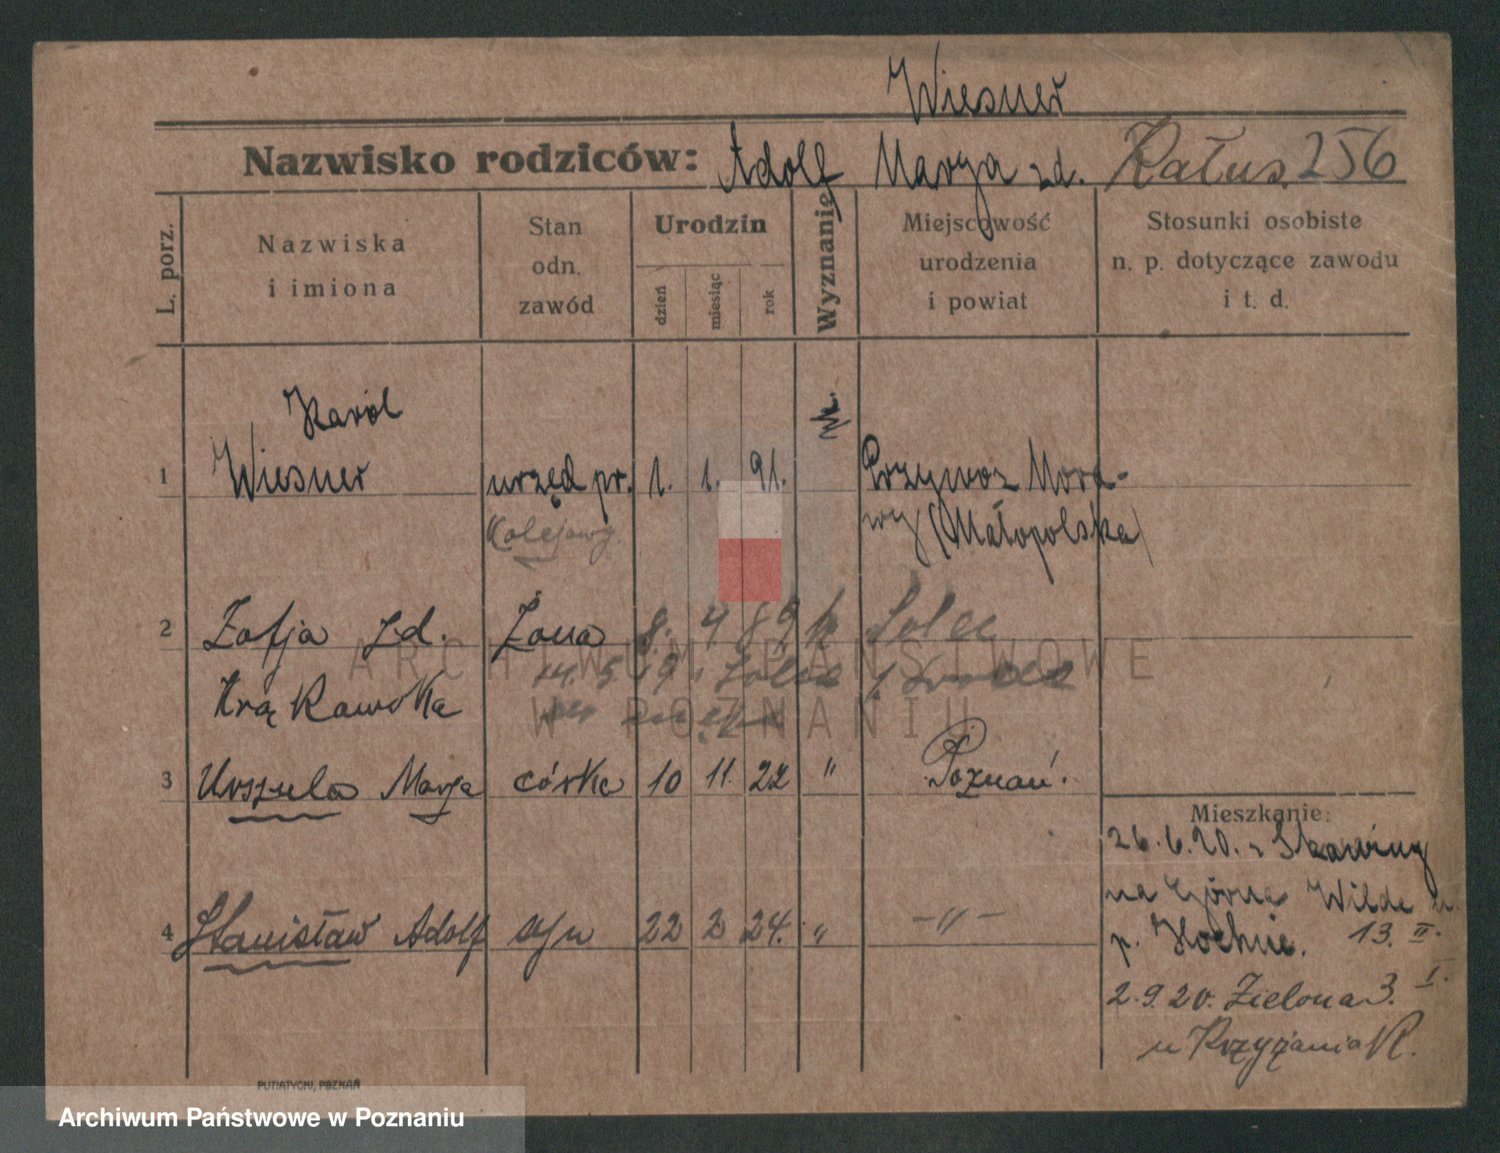 Wiesner
Nazwisko rodziców: Adolf Marya zd. Kałus 256
L. porz.
Nazwiska
i imiona
Stan
odn.
zawód
Urodzin
dzień
miesiąc
rok
Wyznanie
Miejscowość
urodzenia
i powiat
Stosunki osobiste
n. p. dotyczące zawodu
i t. d.
Karól
1 Wiesner urzęd pr. 1. 1. 91. rk. Przywoz Mora-
Kolejowy. wy (Małopolska)
2 Zofja zd. Żona 8. 4 89 k Solec
Krąkowska 14. 5 19
3 Urszula Marya córka 10 11. 22 " Poznań.
Mieszkanie:
26.6.20. z Skawiny
na Górna Wilda
4 Stanisław Adolf syn 22 2 24. " -"-
p. Kochnie. 13. II.
2.9.20. Zielona 3. I.
u Krzyżania R.
PUTIATYCKI, POZNAŃ
ARCHIWUM PAŃSTWOWE
W POZNANIU
Archiwum Państwowe w Poznaniu